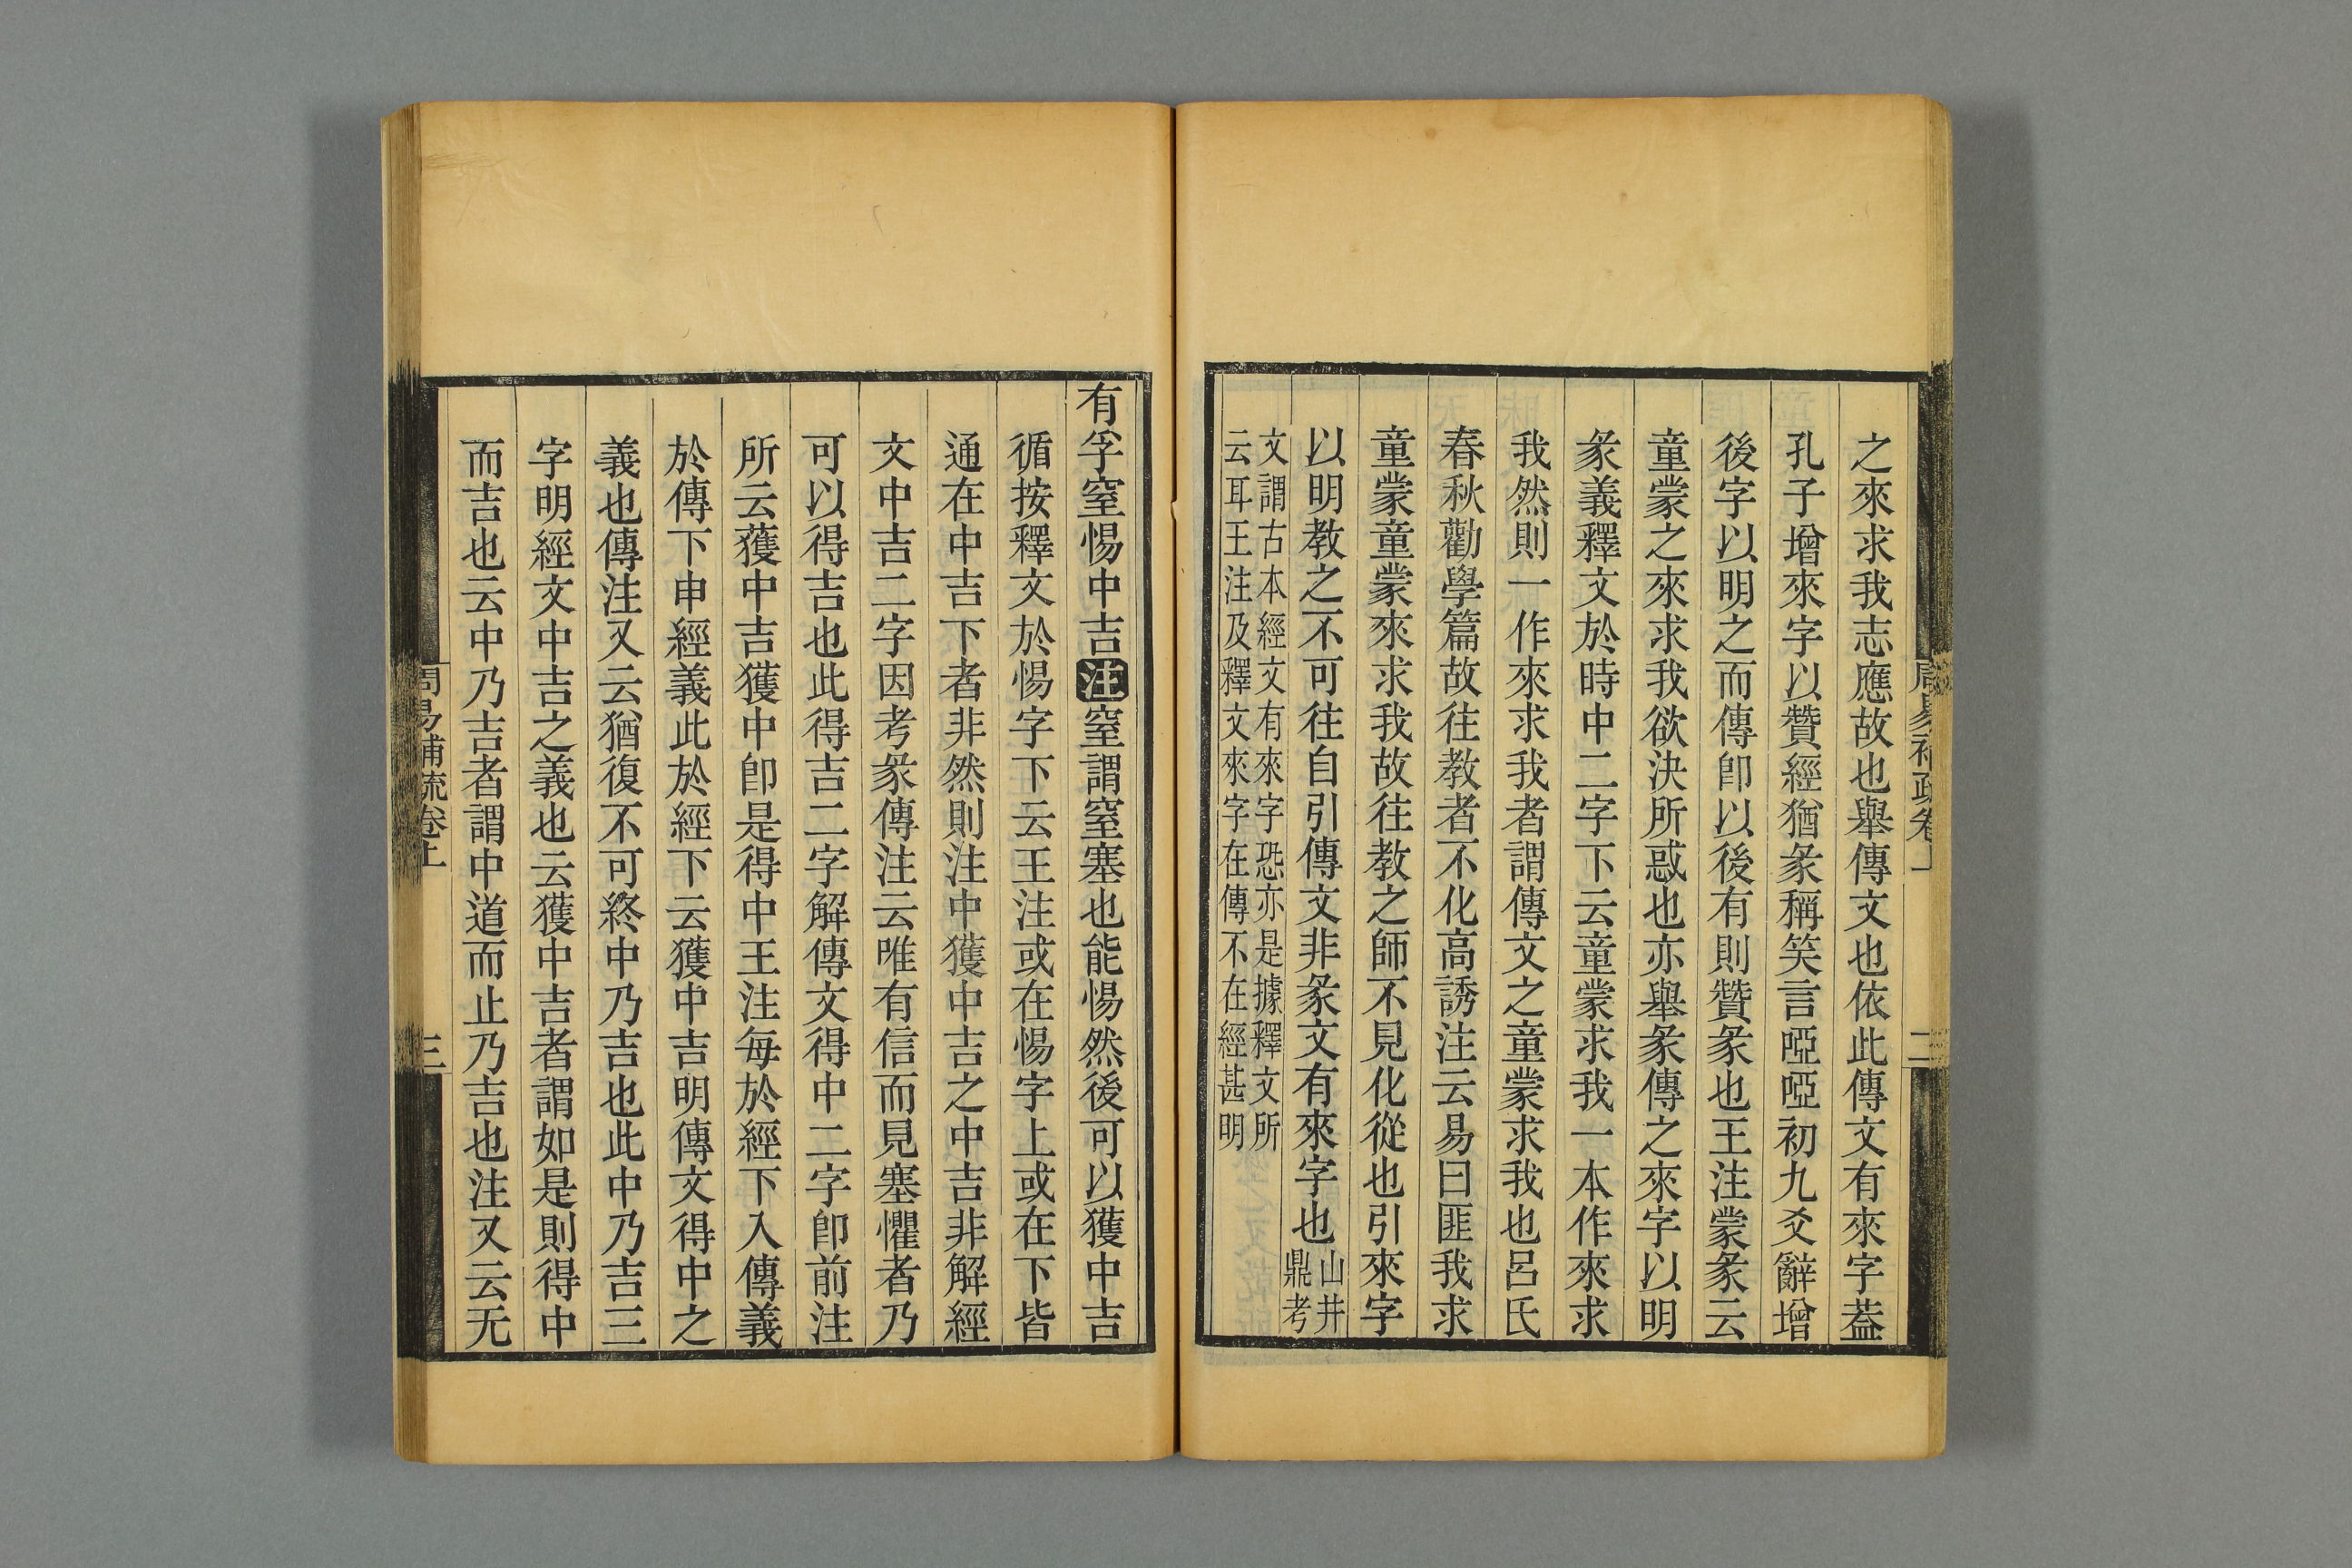 周易補疏卷上
二
之來求我志應故也舉傳文也依此傳文有來字葢
孔子增來字以贊經猶彖稱笑言啞啞初九爻辭增
後字以明之而傳卽以後有則贊彖也王注蒙彖云
童蒙之來求我欲決所惑也亦舉彖傳之來字以明
彖義釋文於時中二字下云童蒙求我一本作來求
我然則一作來求我者謂傳文之童蒙求我也呂氏
春秋勸學篇故往教者不化高誘注云易曰匪我求
童蒙童蒙來求我故往教之師不見化從也引來字
以明教之不可往自引傳文非彖文有來字也山井鼎考
文謂古本經文有來字恐亦是據釋文所
云耳王注及釋文來字在傳不在經甚明
有孚窒惕中吉注窒謂窒塞也能惕然後可以獲中吉
循按釋文於惕字下云王注或在惕字上或在下皆
通在中吉下者非然則注中獲中吉之中吉非解經
文中吉二字因考彖傳注云唯有信而見塞懼者乃
可以得吉也此得吉二字解傳文得中二字卽前注
所云獲中吉獲中卽是得中王注每於經下入傳義
於傳下申經義此於經下云獲中吉明傳文得中之
義也傳注又云猶復不可終中乃吉也此中乃吉三
字明經文中吉之義也云獲中吉者謂如是則得中
而吉也云中乃吉者謂中道而止乃吉也注又云无
周易補疏卷上
三